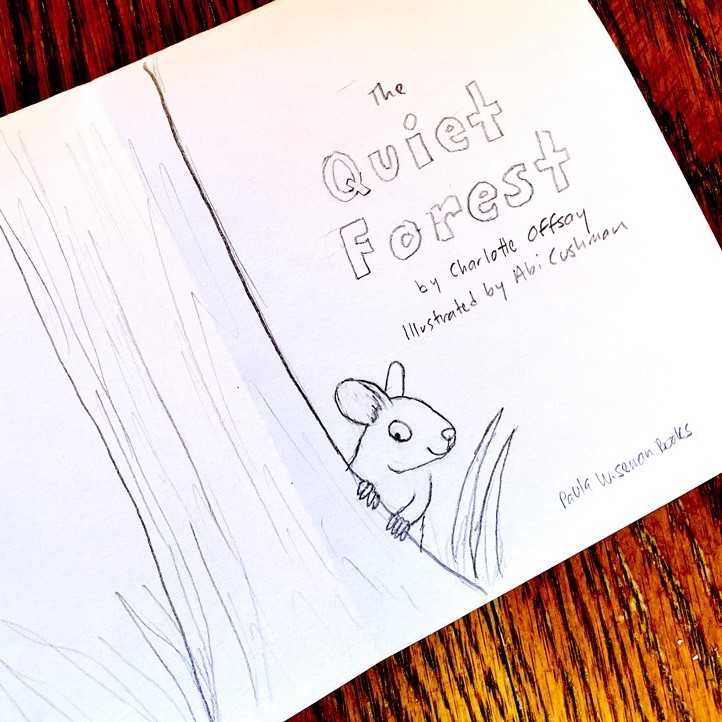 The
Quiet
Forest
by Charlotte Offsay
Illustrated by Abi Cushman
Paula Wiseman Books